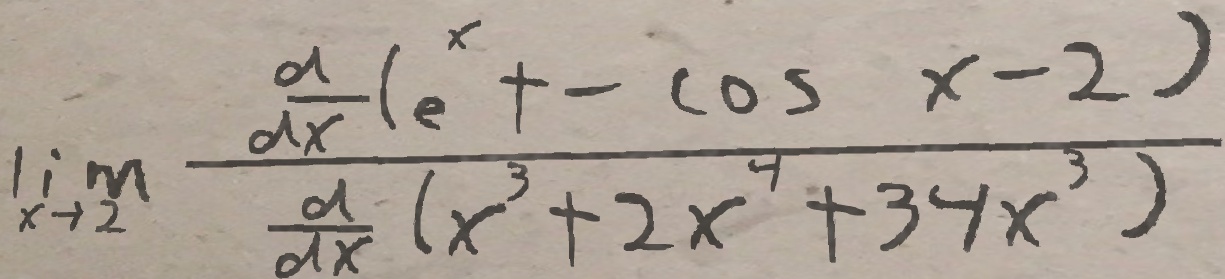 \lim_{x \to 2} \frac{\frac{d}{dx}(e^x + - \cos x - 2)}{\frac{d}{dx}(x^3 + 2x^4 + 34x^3)}